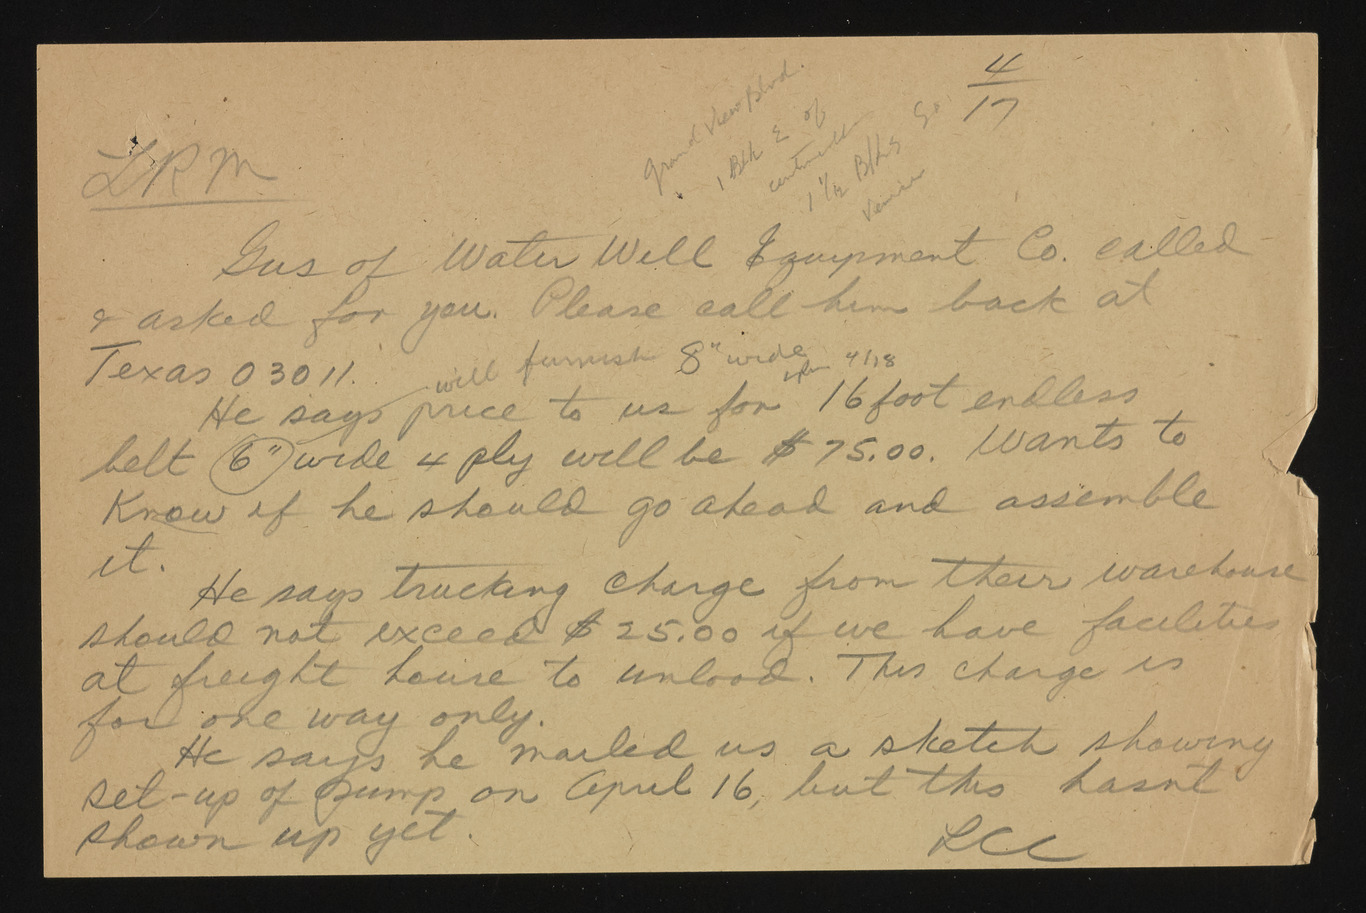 4/17
Grand View Blvd.
1 Blk E of
1 1/2 Blks So.
Venice
LRM
Gus of Water Well Equipment Co. called
& asked for you. Please call him back at
Texas 03011.
will furnish 8" wide
4/18
He says price to us for 16 foot endless
belt 6" wide 4 ply will be $75.00. Wants to
know if he should go ahead and assemble
it.
He says trucking charge from their warehouse
should not exceed $25.00 if we have facilities
at freight house to unload. This charge is
for one way only.
He says he mailed us a sketch showing
set-up of pump on April 16, but this hasn't
shown up yet.
LCC